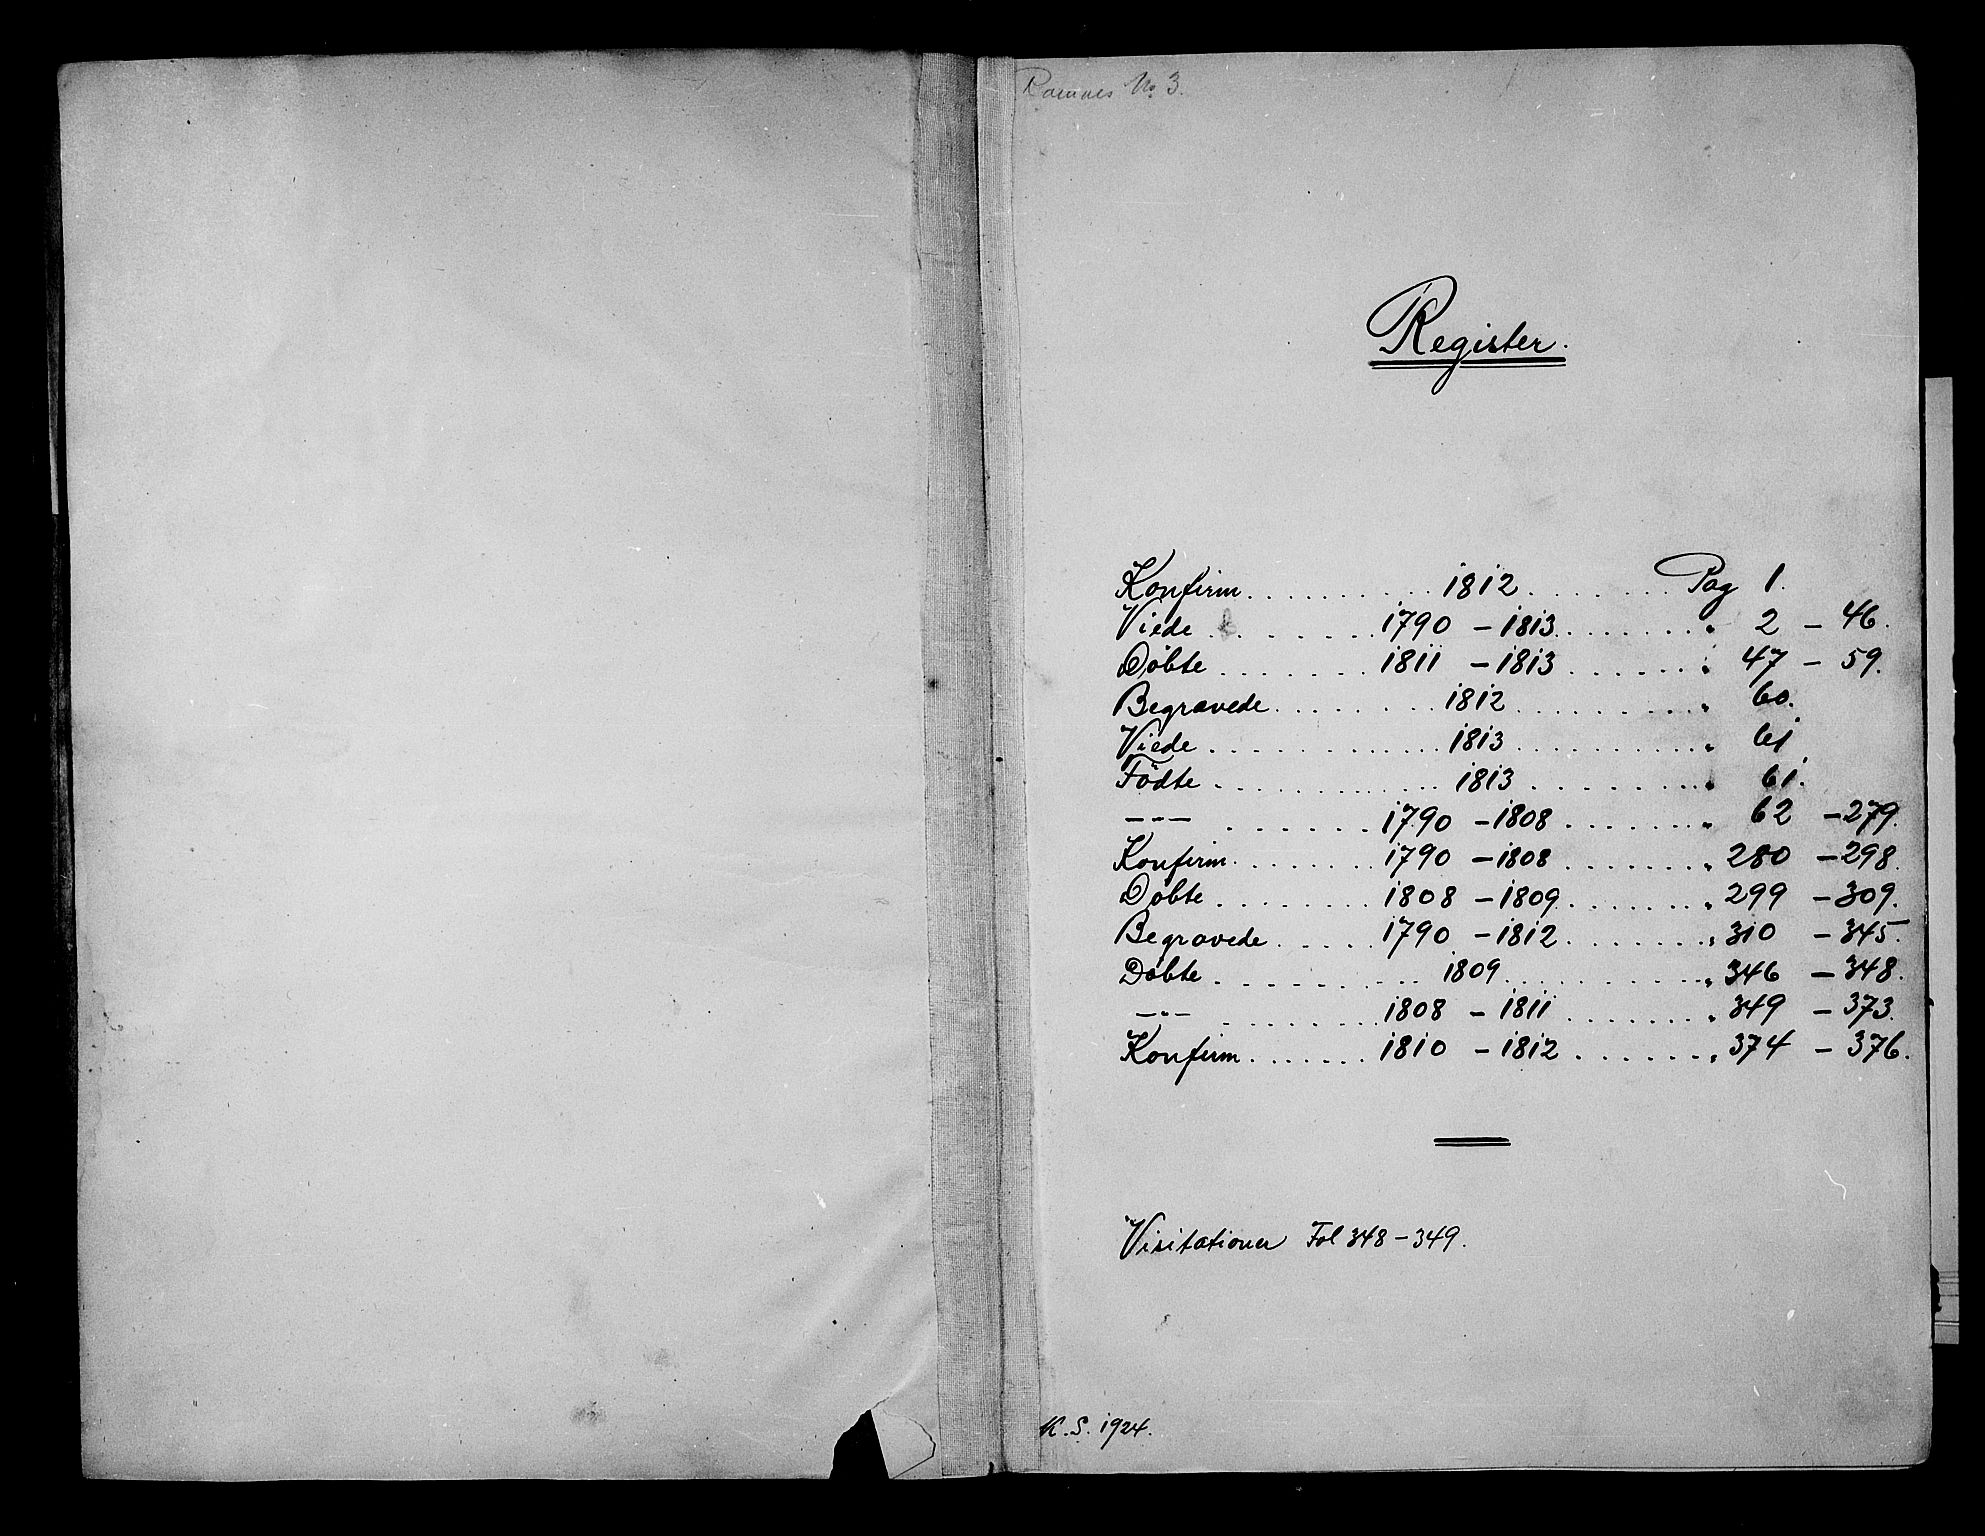 Ramnes No 3.
Register.
Konfirm.......... 1812........ Pag 1.
Viede ......... 1790 - 1813....... " 2 - 46.
Døbte ........ 1811 - 1813 ...... " 47 - 59.
Begravede........ 1812.......... " 60.
Viede............ 1813........... " 61
Födte ............ 1813.......... " 61.
--- ...... 1790 - 1808....... " 62 - 279.
Konfirm....... 1790 - 1808....... " 280 - 298.
Døbte......... 1808 - 1809....... " 299 - 309.
Begravede..... 1790 - 1812....... " 310 - 345.
Døbte........... 1809.......... " 346 - 348.
--- ........ 1808 - 1811 ....... " 349 - 373.
Konfirm....... 1810 - 1812 ...... " 374 - 376.
Visitationer Fol 348 - 349.
K. S. 1924.